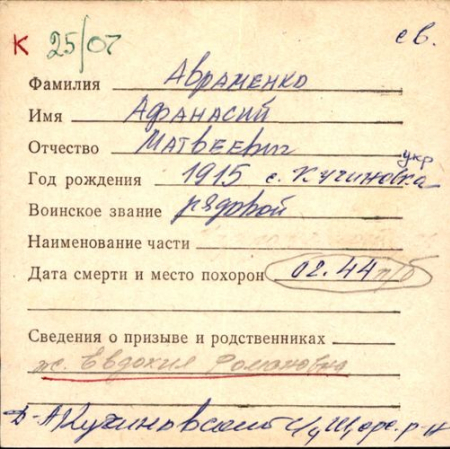 к 25/07 св.
Фамилия Авраменко
Имя Афанасий
Отчество Матвеевич
укр
Год рождения 1915 с. Кучиновка
Воинское звание рядовой
Наименование части
Дата смерти и место похорон 02.44 п/б
Сведения о призыве и родственниках
ж. Евдокия Романовна
Кучиновский с/с Щорс. р-н